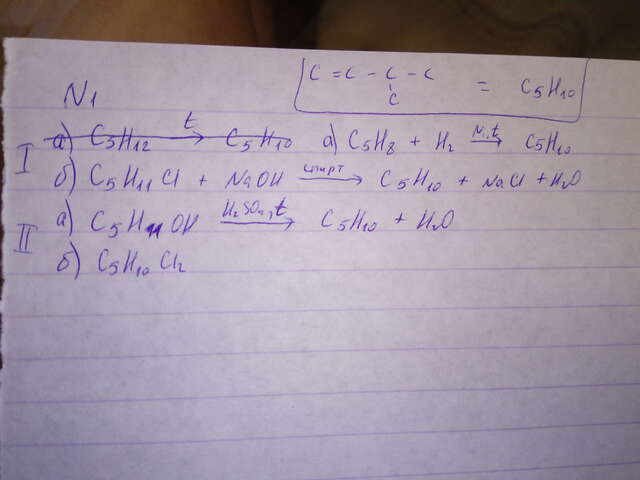 N1
C = C - C - C = C5H10
C
а) C5H12 t → C5H10 а) C5H8 + H2 Ni,t → C5H10
I
б) C5H11Cl + NaOH спирт → C5H10 + NaCl + H2O
II а) C5H11OH H2SO4,t → C5H10 + H2O
б) C5H10Cl2